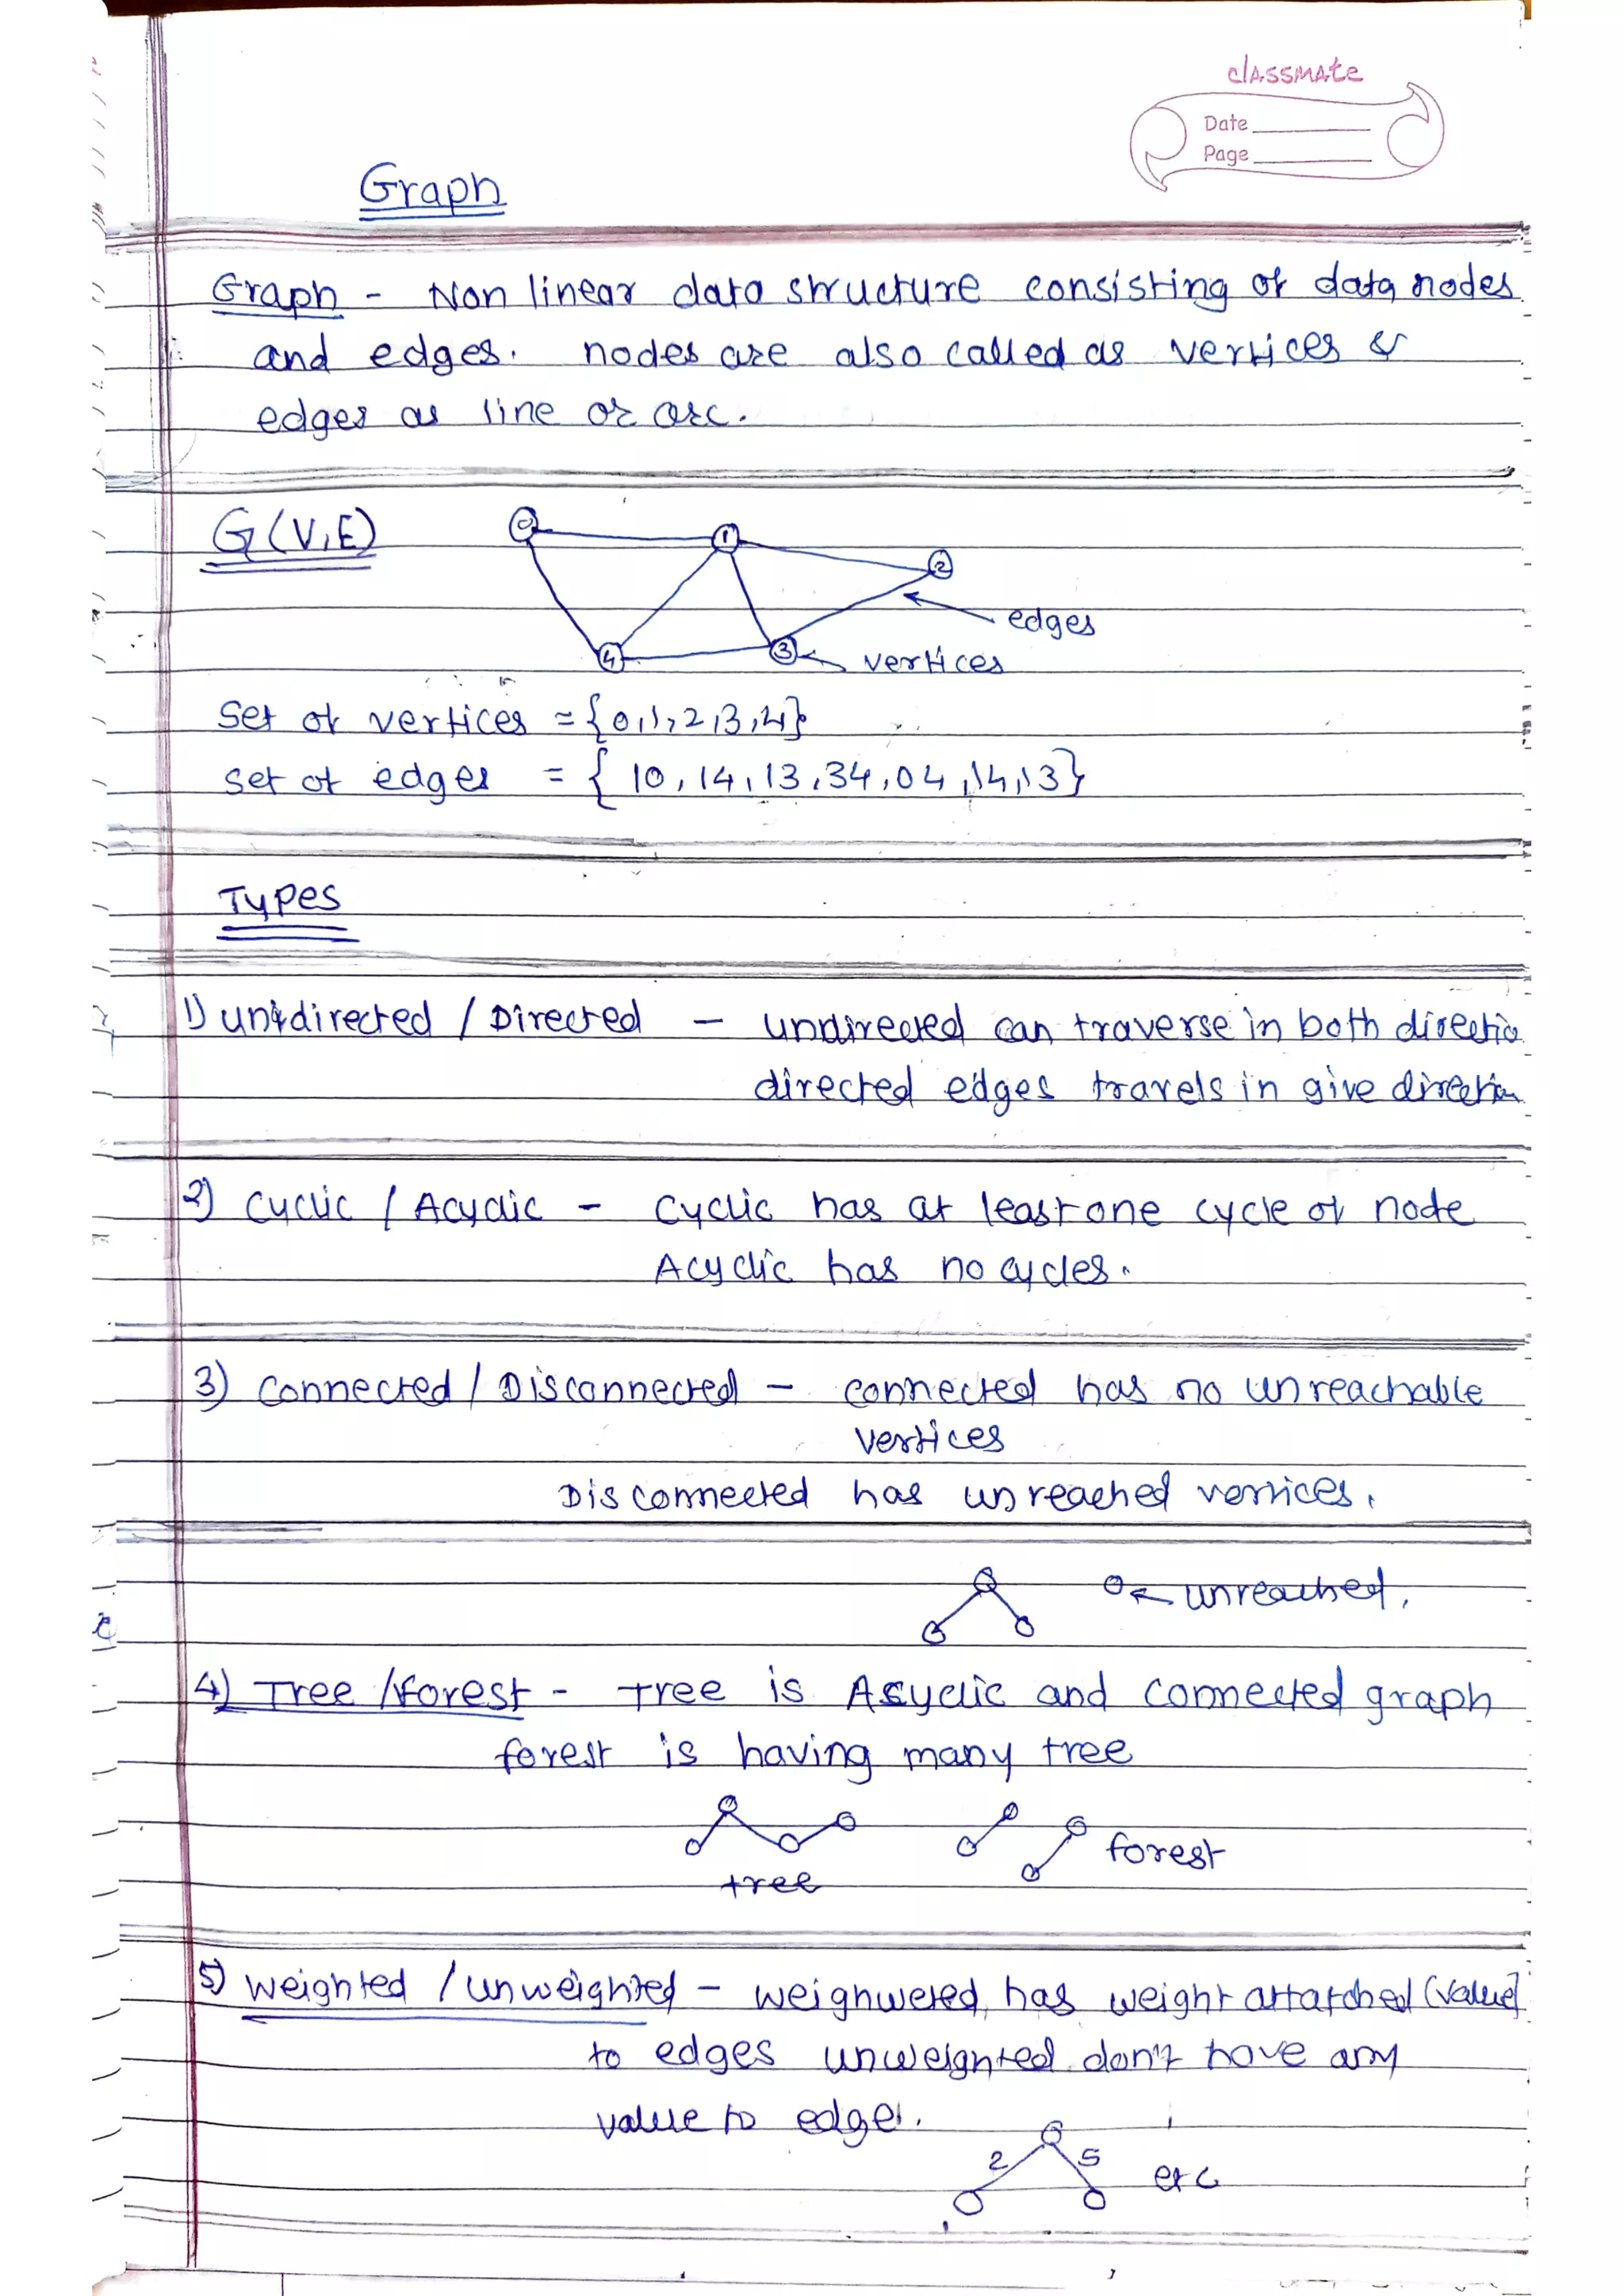 classmate
Date
Page
Graph
Graph - Non linear data structure consisting of data nodes
and edges. nodes are also called as vertices &
edges as line or arc.
G(V,E)
0 1 2
edges
4 3 vertices
set of vertices = {0,1,2,3,4}
set of edges = { 10, 14, 13, 34, 04, 14, 13}
Types
1) undirected / Directed - undirected can traverse in both directio
directed edges travels in give direction
2) Cyclic / Acyclic - Cyclic has at least one cycle of node
Acyclic has no cycles.
3) Connected / Disconnected - connected has no unreachable
vertices
Disconnected has unreached vertices.
unreached.
4) Tree / forest - tree is Acyclic and connected graph
forest is having many tree
forest
tree
5) weighted / unweighted - weighweted has weight attatched (value)
to edges unweighted don't have any
value to edge.
2 5 etc